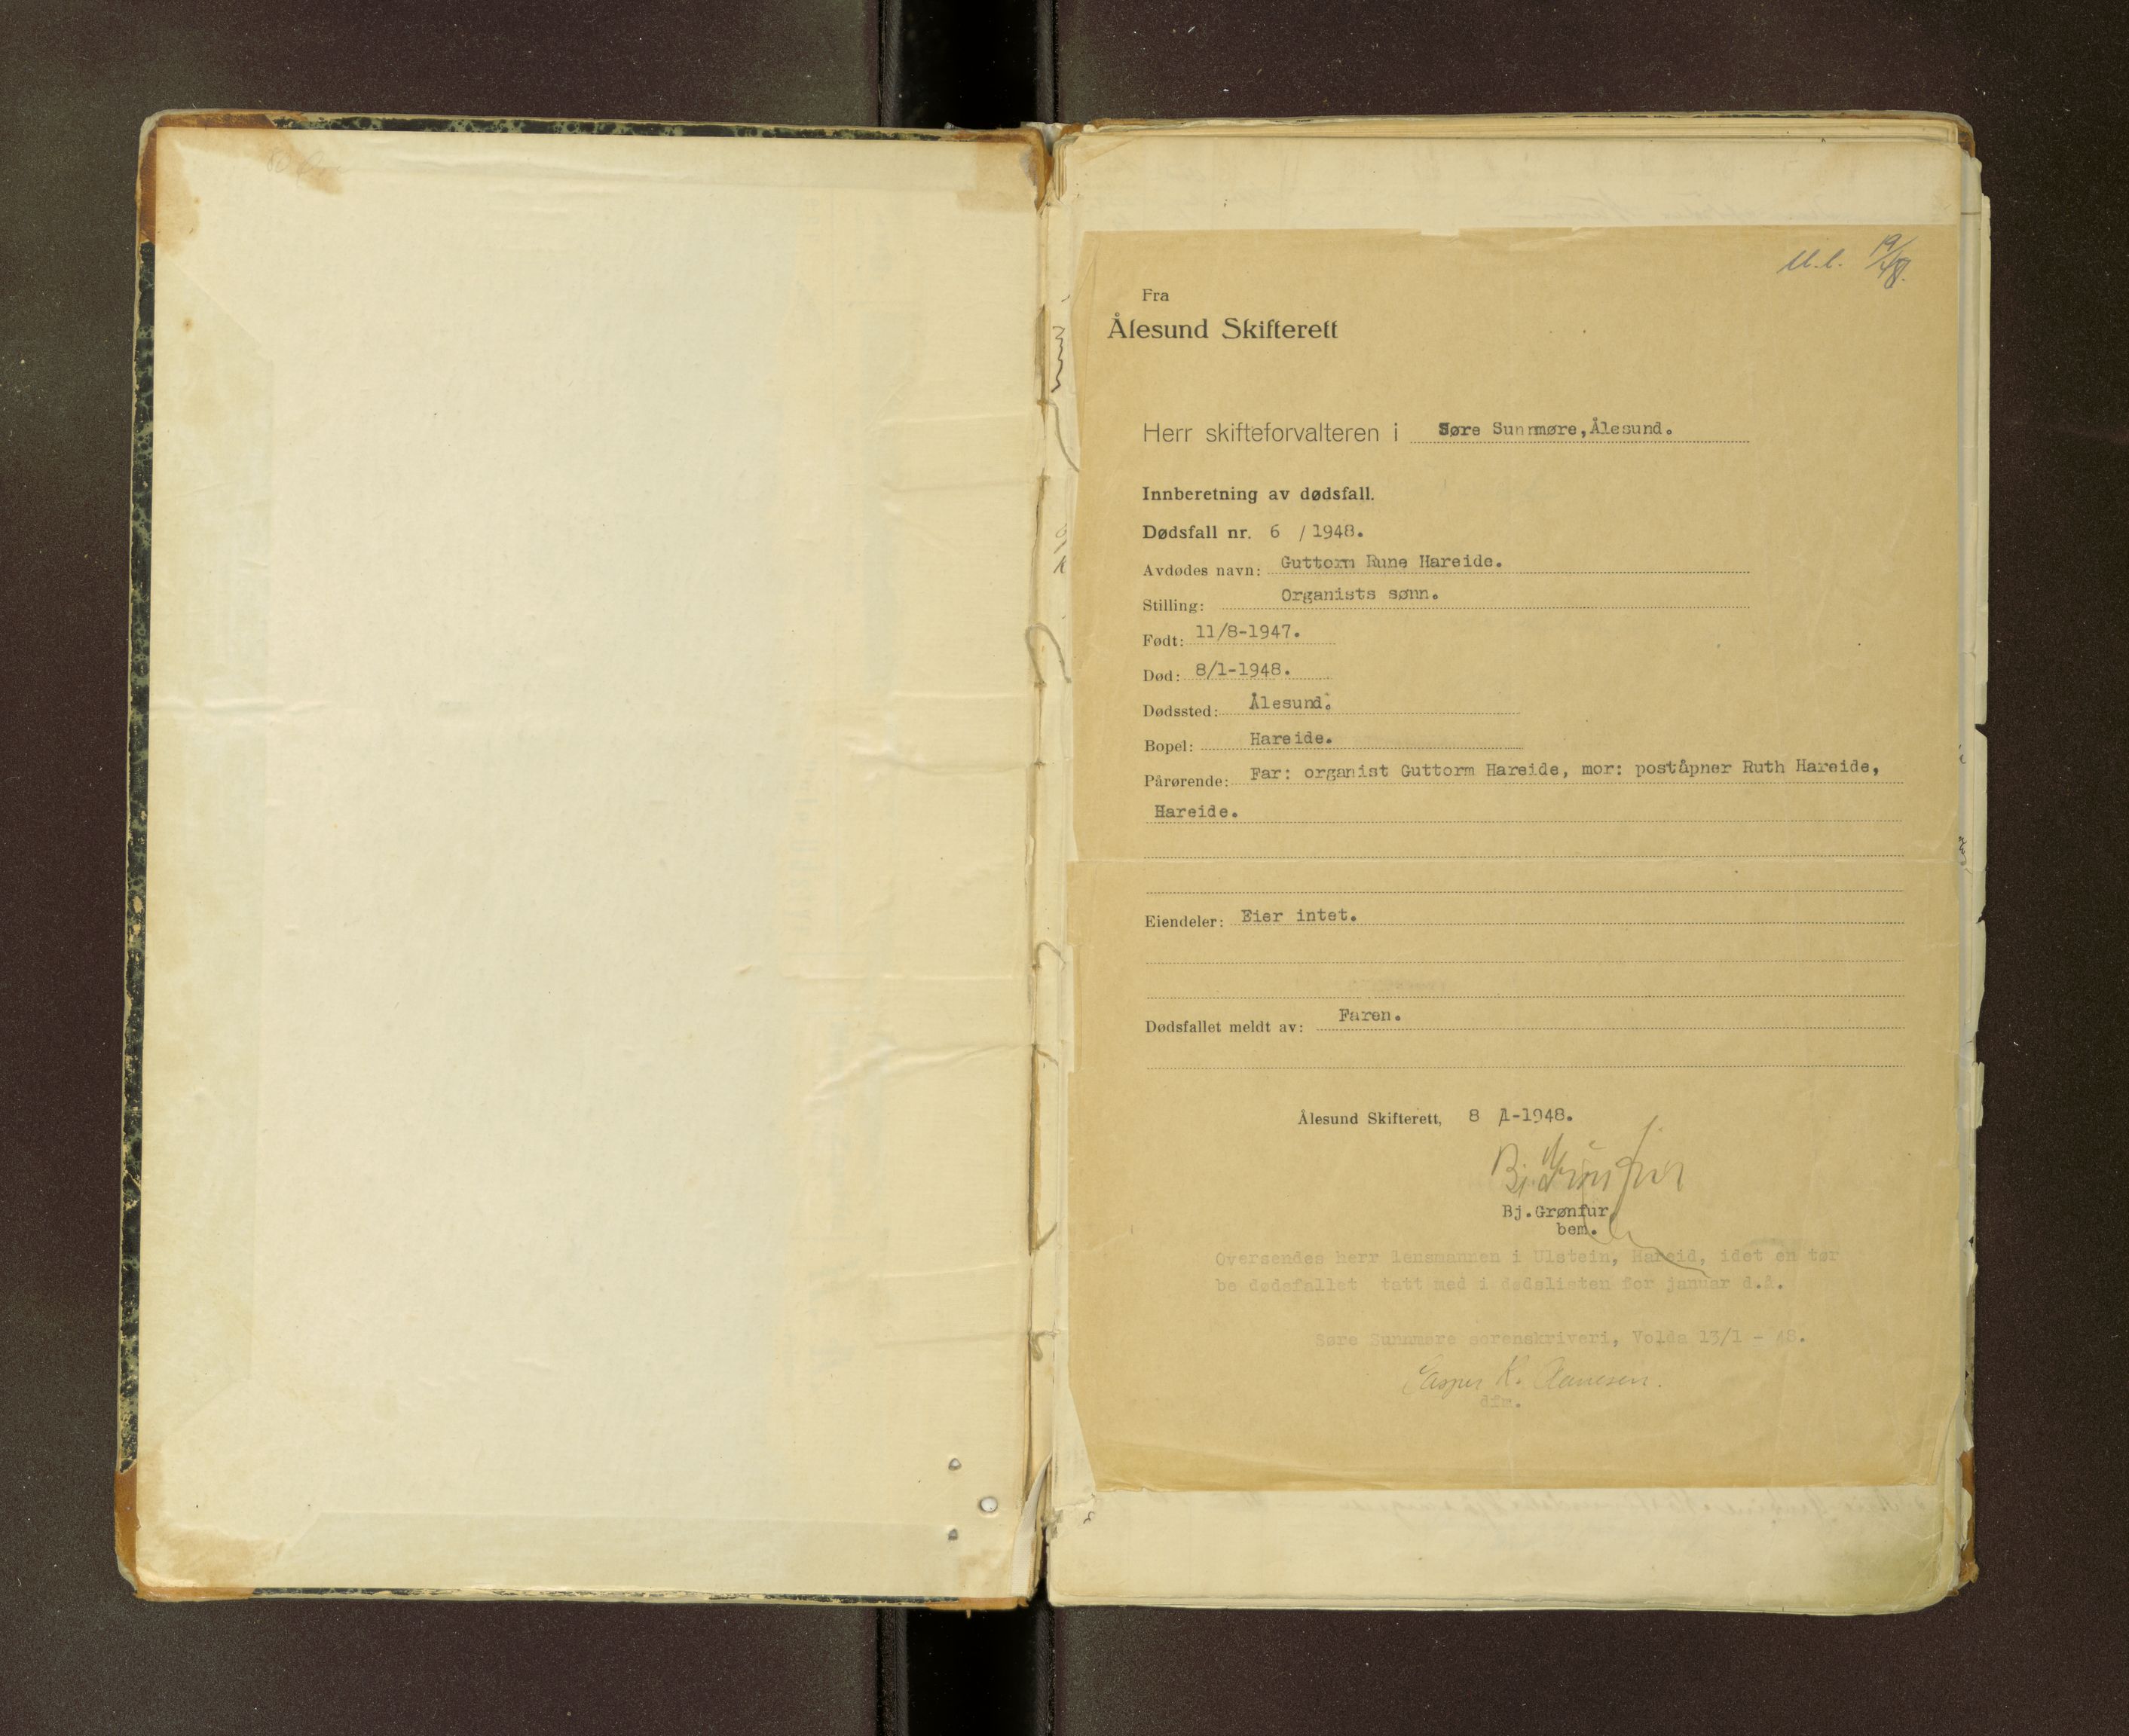 U.l. 19/1 48.
Fra
Ålesund Skifterett
Herr skifteforvalteren i Søre Sunnmøre, Ålesund.
Innberetning av dødsfall.
Dødsfall nr. 6 / 1948.
Avdødes navn: Guttorm Rune Hareide.
Stilling: Organists sønn.
Født: 11/8-1947.
Død: 8/1-1948.
Dødssted: Ålesund.
Bopel: Hareide.
Pårørende: Far: organist Guttorm Hareide, mor: poståpner Ruth Hareide,
Hareide.
Eiendeler: Eier intet.
Dødsfallet meldt av: Faren.
Ålesund Skifterett, 8 /1-1948.
Bj. Grønfur
Bj.Grønfur
bem.
Oversendes herr lensmannen i Ulstein, Hareid, idet en tør
be dødsfallet tatt med i dødslisten for januar d.å.
Søre Sunnmøre sorenskriveri, Volda 13/1 - 48.
Casper K. Aanesen.
dfm.